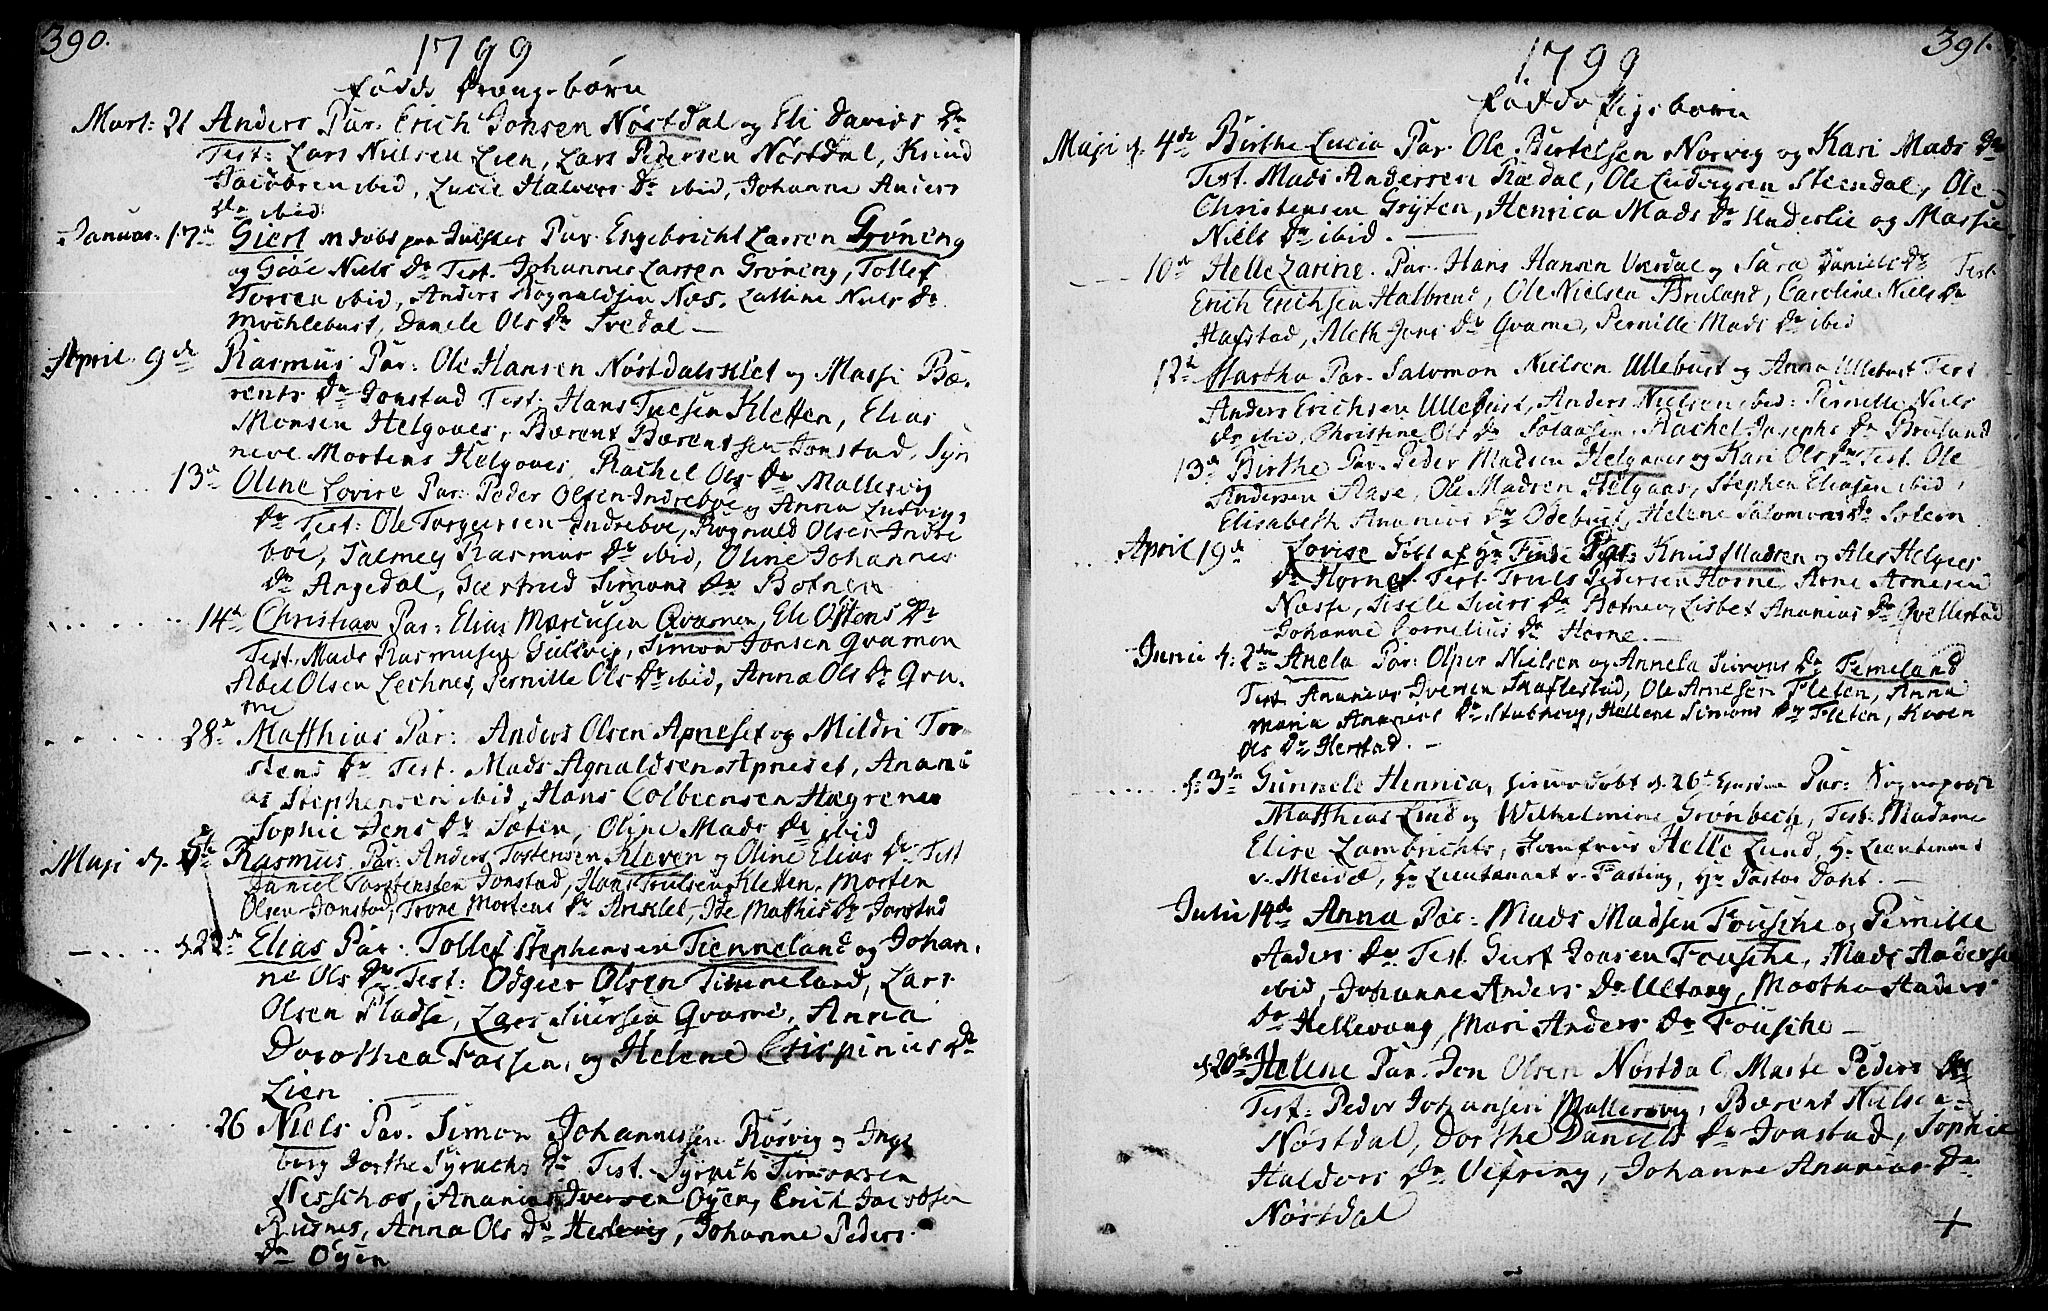 390.
1799
fødde Drengebørn
Mart: 21 Anders Par. Erich Jonsen Nøstdal og Eli Davids Dr
Test: Lars Nielsen Lien, Lars Pedersen Nøstdal, Knud
Jacobsen ibid, Lucie Halvors Dr ibid, Johanne Anders
Dr ibid
Januar. 17de Giert Par. Engebricht Larsen Grøning
og Niels Dr Test. Johannes Larsen Grøning, Tollef
Tosten ibid, Anders Rognaldsen Næs, Niels Dr
Mychlebust, Danele Ols Dr Svedal
April. 9de Rasmus Par: Ole Hansen Nøstdalsklet og Massi Bæ-
rents Dr Jonstad Test: Hans Kletten, Elias
Monsen Helgaaes, Bærent Bærentsen Jonstad, Syn
neve Mortens Helgoaes, Rachel Ols Dr Mallesvig
13de Oline Lovise Par: Peder Olsen Indreboe og Anna Ludvigs
Dr Test: Ole Torgersen Indreboe, Rognald Olsen Indre
boe, Salmey Rasmus Dr ibid, Oline Johannes
Dr Angedal, Geertrud Simons Dr Botnen
14de Christian Par: Elias Marcusen Qvamen, Eli Ostens Dr
Test. Mads Rasmusen Gullvig, Simon Jonsen Qvamen
Abel Olsen Lechnes, Pernille Ols Dr ibid, Anna Ols Dr Qva-
me
28de Matthias Par: Anders Olsen Apneset og Mildri Tor
stens Dr Test. Mads Agnaldsen Apneset, Anani
as Stephensen ibid, Hans Colbeensen Hægrenes
Sophie Jens Dr Sæten, Oline Mads Dr ibid
Maji d. 5te Rasmus, Par: Anders Tostensen Kleven og Oline Elias Dr Test
Daniel Torstensen Jonstad, Hans Trulsen Kletten, Morten
Olsen Jonstad, Trone Mortens Dr Arsklet, Ide Mathis Dr Jonstad
Elias Par. Tollef Stephensen Tiemeland og Johan-
ne Ols Dr Test: Odgier Olsen Timmeland, Lars
Olsen Fladse, Lars Siursen Qvame, Anna
Dorothea Fassen, og Helene Crispinius Dr
Lien
26 Niels Par. Simon Johannessen Rørvig og Inge
borg Dorthe Syrachs Dr Test. Syrach Simonsen
Nesschar, Ananias Iversen Øyen, Erich Jacobsen
Russnes, Anna Ols Dr Heslevig, Johanne Peders
Dr Øyen
391.
1799
fødde Pigebørn
Maji d. 4de Birthe Lucia Par. Ole Bertelsen Norvig og Kari Mads Dr
Test. Mads Andersen Rædal, Ole Ludvigsen Steendal, Ole
Christensen Gryten, Henrica Mads Dr Underlie og Massie
Niels Dr ibid.
10de Helle Zarine. Par. Hans Hansen Vævdal og Sara Daniels Dr Test.
Erich Erichsen Halbrend, Ole Nielsen Bruland, Caroline Niels Dr
Hafstad, Aleth Jens Dr Qvame, Pernille Mads Dr ibid
12te Martha Par. Salomon Nielsen Ullebust og Anna Ullebust Test
Anders Erichsen Ullebust, Anders Nielsen ibid: Pernille Niels
Dr ibid, Christine Ols Dr Rachel Josephs Dr Bruland
13de Birthe Par. Peder Madsen Helgaaes og Kari Ols Dr Test. Ole
Andersen Aase, Ole Madsen Helgaas, Stephen Eliasen ibid,
Elisabeth Ananias Dr Ødebust, Helene Salomons Dr Solem
April 19de Lovise Født af Hr Finde Par Knud Madsen og Ales Helges
Dr Horne Test. Truls Pedersen Horne Arne Arnesen
Næsse, Sisele Siurs Dr Botnen, Lisbet Ananias Dr Qvellestad
Johanne Cornelius Dr Horne.
Junii d: 2den Anela Par: Olper Nielsen og Annela Simons Dr Temeland
Test. Ananias Iversen Skaflestad, Ole Arnesen Fleten, Anna
Maria Ananias Dr Stubhoug, Hellene Simons Dr Fleten, Karen
Ols Dr Herstad.
d. 3die Gunnele Henrica, d. 26te Par: Sogneprest
Matthias Lund og Wilhelmine Grønbech, Test: Madame
Elise Lambrichts, Jomfrue Helle Lund, Hr Lieutenant
v. Hr Lieutenant v. Fasting, Hr Pastor Dahl.
Julii 14de Anna Par: Mads Madsen Fousche og Pernille
Anders Dr Test. Jonsen Fousche, Mads Andersen
ibid, Johanne Anders Dr Ultang, Martha Anders
Dr Hellevang, Mari Anders Dr Fousche
d. 20de Helene Par. Jon Olsen Nøstdal Marte Peders Dr
Test: Peder Johansen Mallesvig, Bærent Nielsen
Nøstdal, Dorthe Daniels Dr Jonstad, Sophie
Haldors Dr Vefring, Johanne Ananias Dr
Nøstdal
+